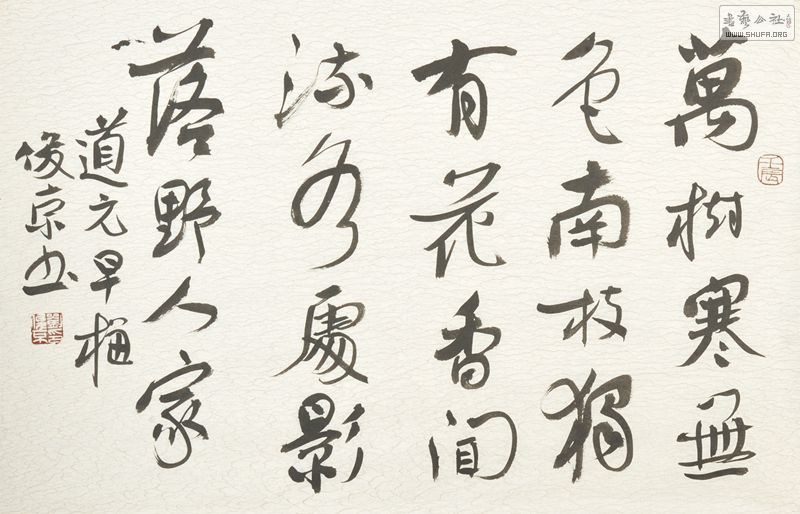 萬樹寒無
色南枝獨
有花香聞
流水處影
落野人家
道元早梅
俊京书
書藝公社
WWW.SHUFA.ORG